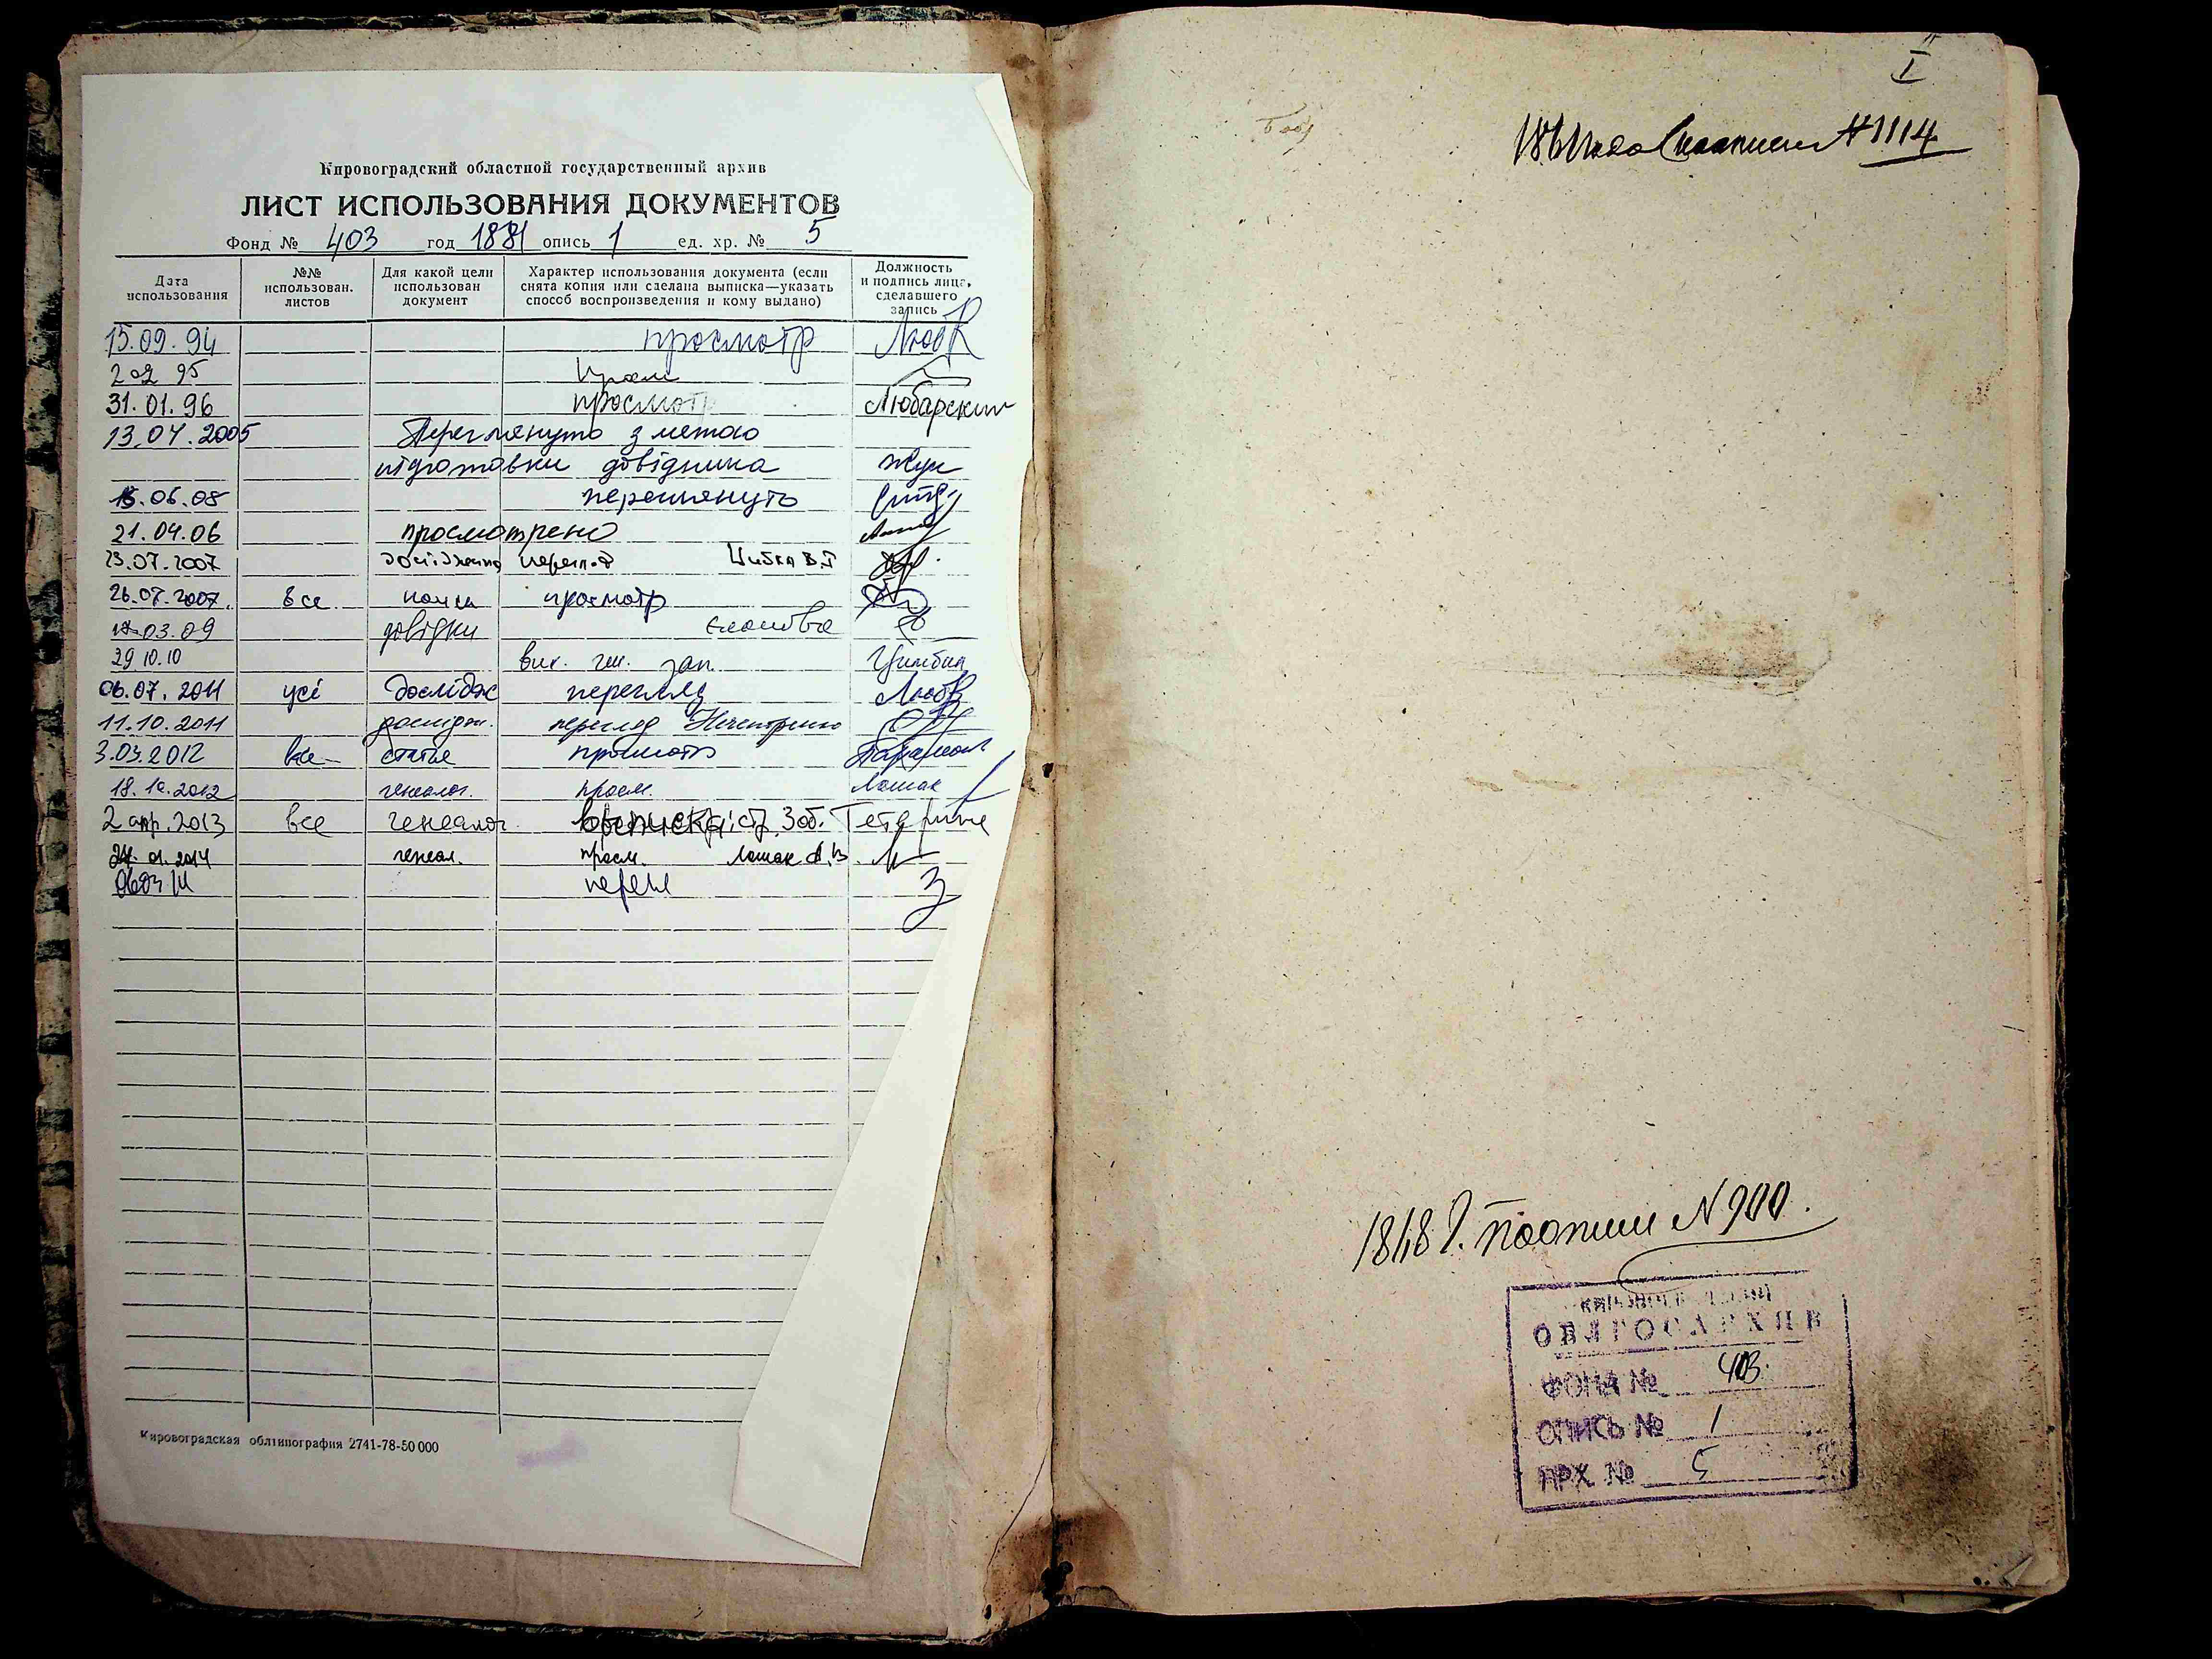 Кировоградский областной государственный архив
ЛИСТ ИСПОЛЬЗОВАНИЯ ДОКУМЕНТОВ
Фонд № 403 год 1881 опись 1 ед. хр. № 5
Дата использования
№№ использован. листов
Для какой цели использован документ
Характер использования документа (если снята копия или сделана выписка—указать способ воспроизведения и кому выдано)
Должность и подпись лица, сделавшего запись
15.09.94 просмотр
2 02 95 просм
31.01.96 просмотр Любарский
13.04.2005 Переглянуто з метою
підготовки довідника Жук
15.06.08 переглянуто
21.04.06 просмотрено
23.07.2007 перегляд Цибка В.
26.07.2007 все просмотр
03.09 довідки
29.10.10 зап.
06.07.2011 усі дослідж перегляд
11.10.2011 дослідж. перегляд
3.03.2012 все статья просмотр
18.10.2012 генеалог. просм. Лошак
2 апр. 2013 все генеалог. выписка; стр. 3 об.
24.01.2014 генеал. просм. Лошак
перегл
Кировоградская облтипография 2741-78-50 000
I
№ 1114
1848 г. по описи № 900.
КИРОВОГРАДСКИЙ
ОБЛГОСАРХИВ
ФОНД № 403
ОПИСЬ № 1
АРХ. № 5